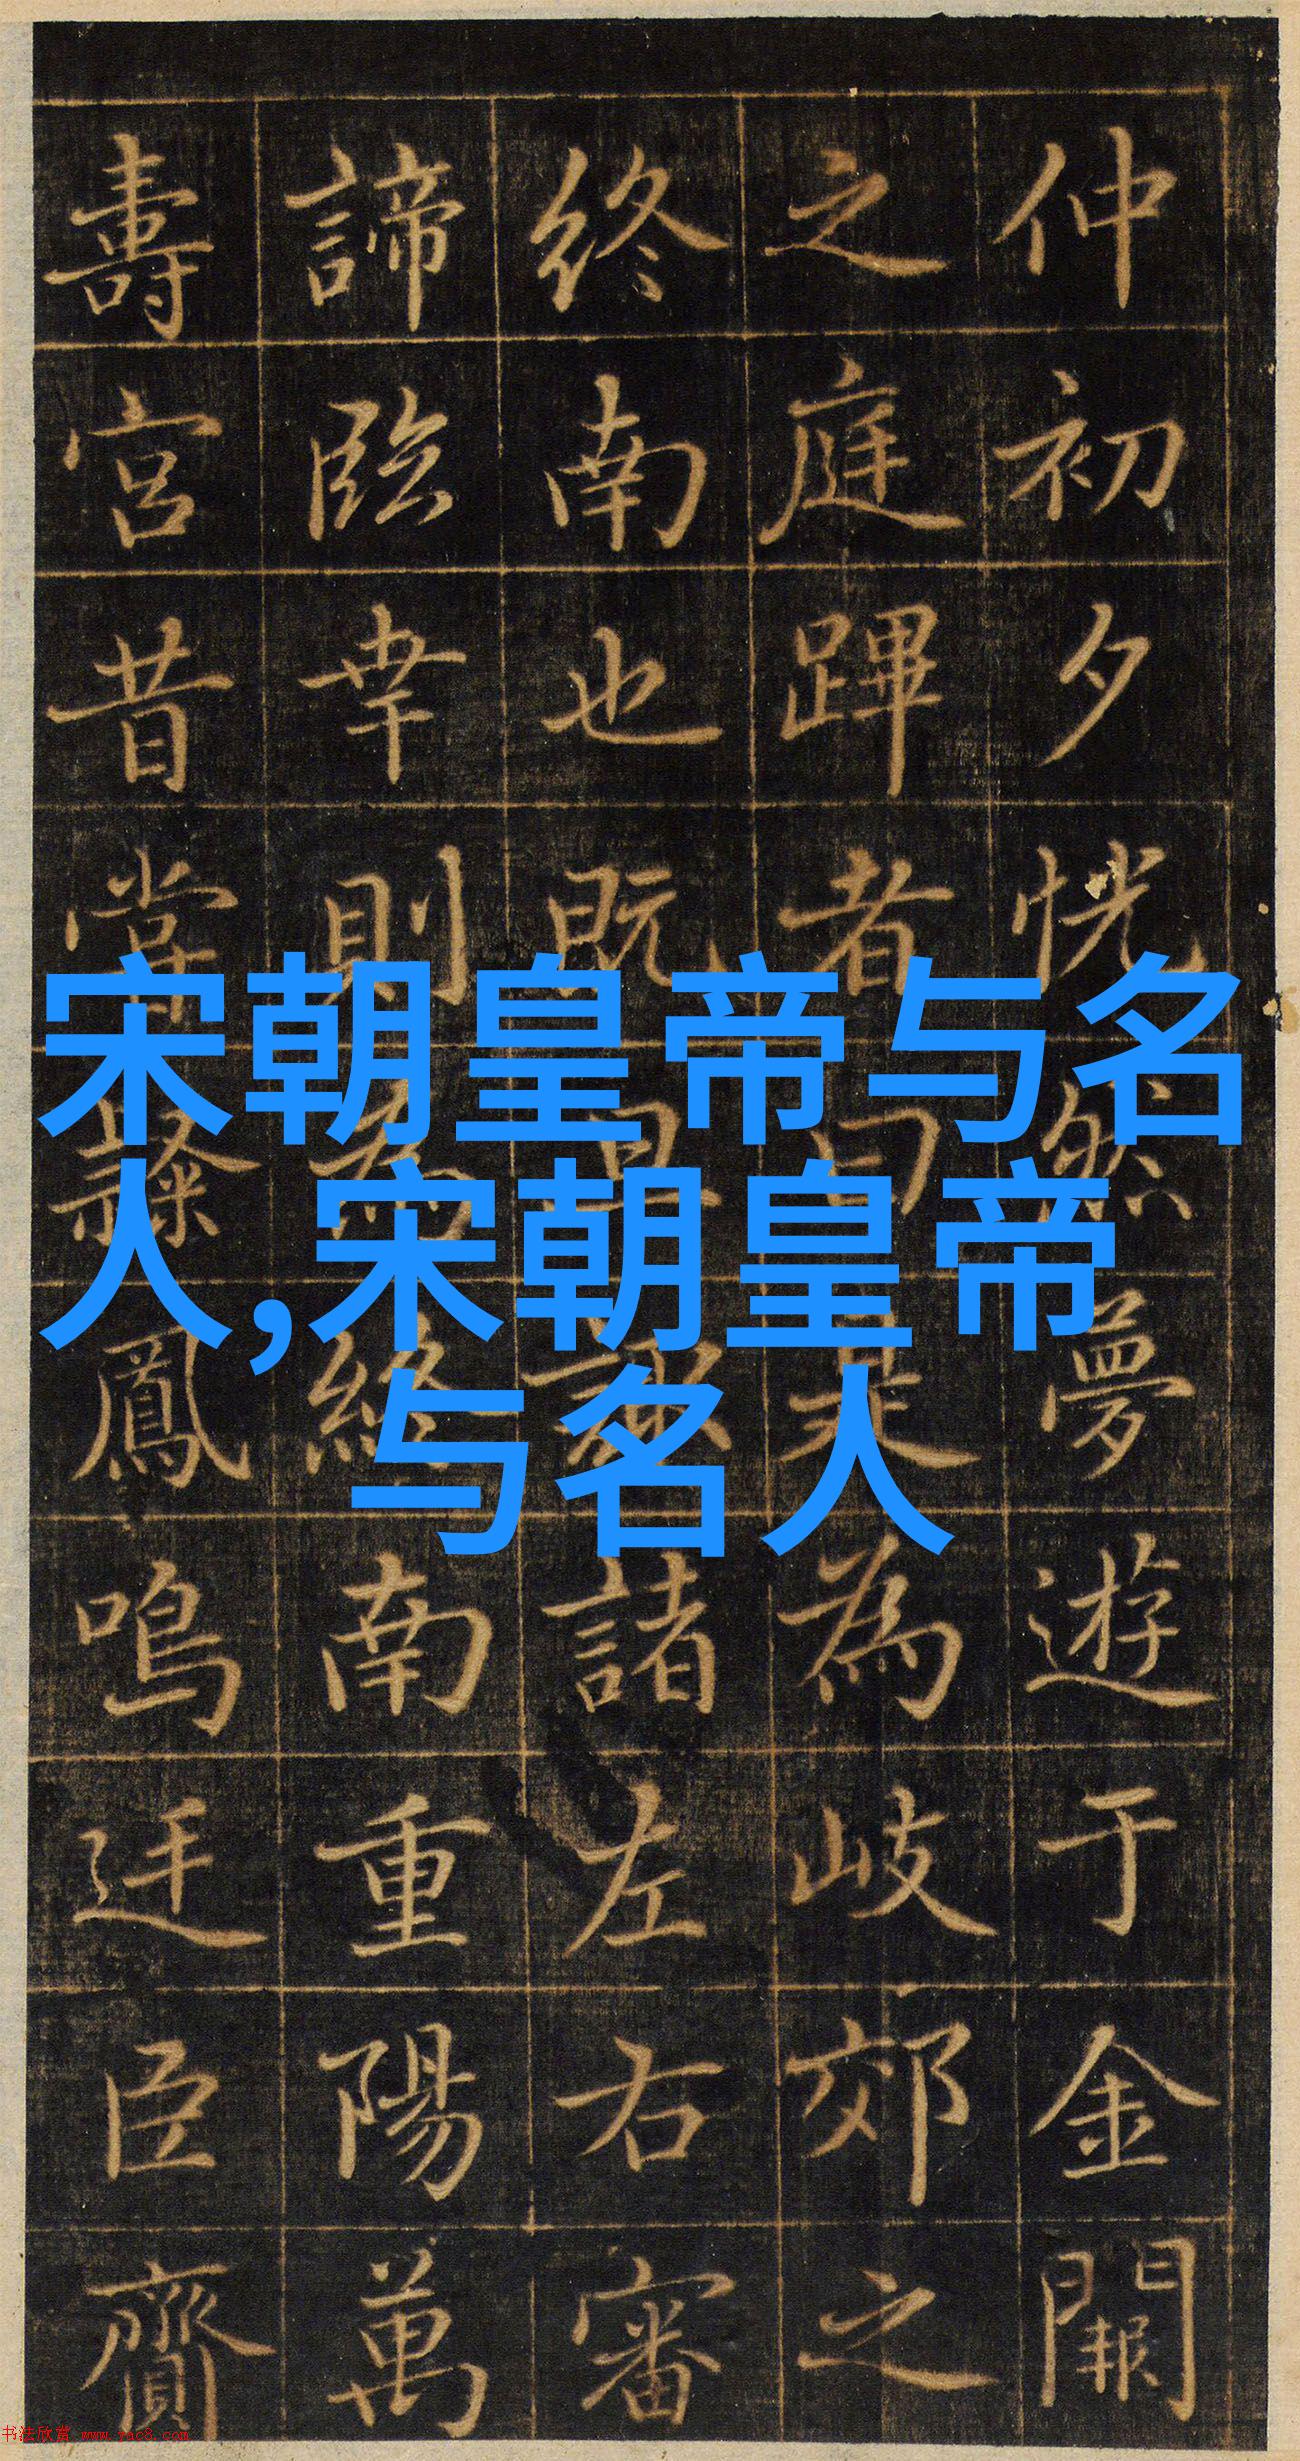 仲初夕恍然夢遊于金闕
之庭蹕者曰是為岐郊之
終南也既旦諏諸左右審
諦臨幸則為終南重陽萬
壽宮昔嘗隸鳳鳴廷臣齎
宋朝皇帝与名
人,宋朝皇帝
与名人
书法欣赏 www.yac8.com